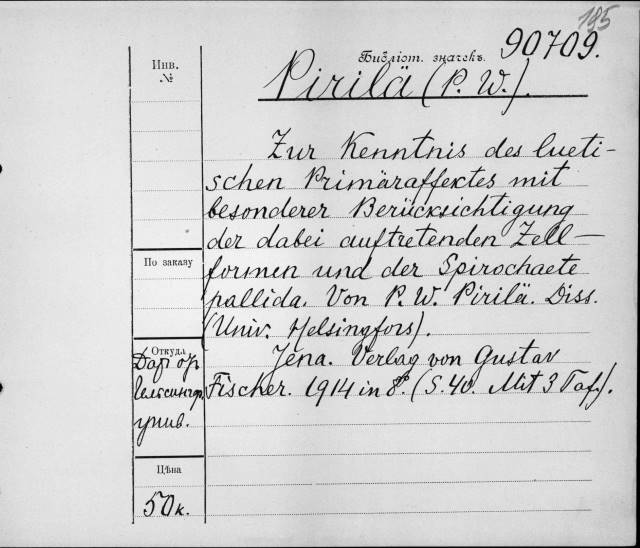 185
Библіот. значекъ 90709.
Инв.
№
Pirilä (P. W.).
Zur Kenntnis des lueti-
schen Primäraffektes mit
besonderer Berücksichtigung
der dabei auftretenden Zell-
formen und der Spirochaete
pallida. Von P. W. Pirilä. Diss.
(Univ. Helsingfors).
Jena. Verlag von Gustav
Fischer. 1914 in 8º. (S. 40. Mit 3 Taf.).
По заказу
Откуда
Дар от
Гельсингф.
унив.
Цѣна
50 к.